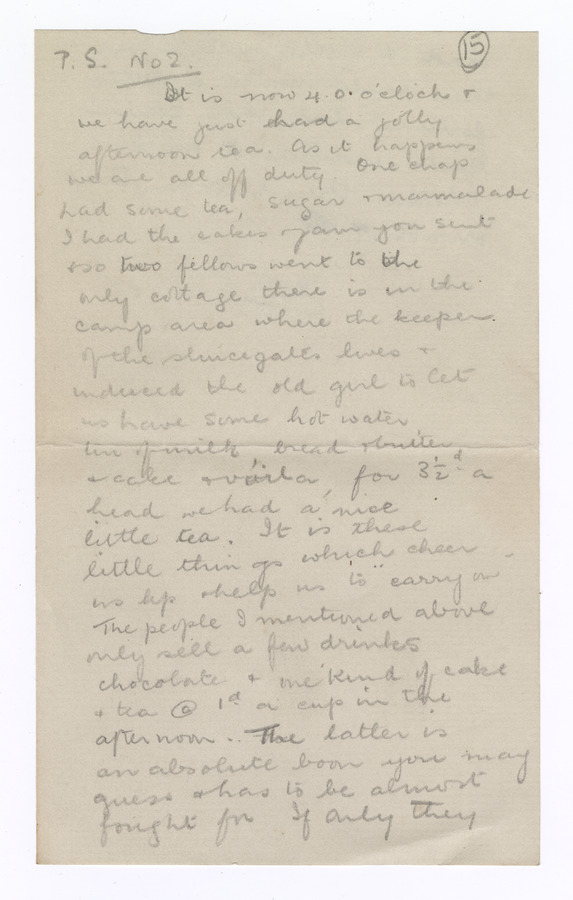 15
P.S. No 2.
It is now 4.0. o'clock &
we have just had a jolly
afternoon tea. As it happens
we are all off duty. One chap
had some tea, sugar & marmalade
I had the cakes & jam you sent
& so two fellows went to the
only cottage there is in the
camp area where the keeper
of the sluicegates lives &
induced the old girl to let
us have some hot water,
tin of milk, bread & butter
& cake & voila, for 3½d a
head we had a nice
little tea. It is these
little things which cheer
us up & help us to "carry on"
The people I mentioned above
only sell a few drinks
chocolate & one kind of cake
& tea @ 1d a cup in the
afternoon.. The latter is
an absolute boon you may
guess & has to be almost
fought for If only they